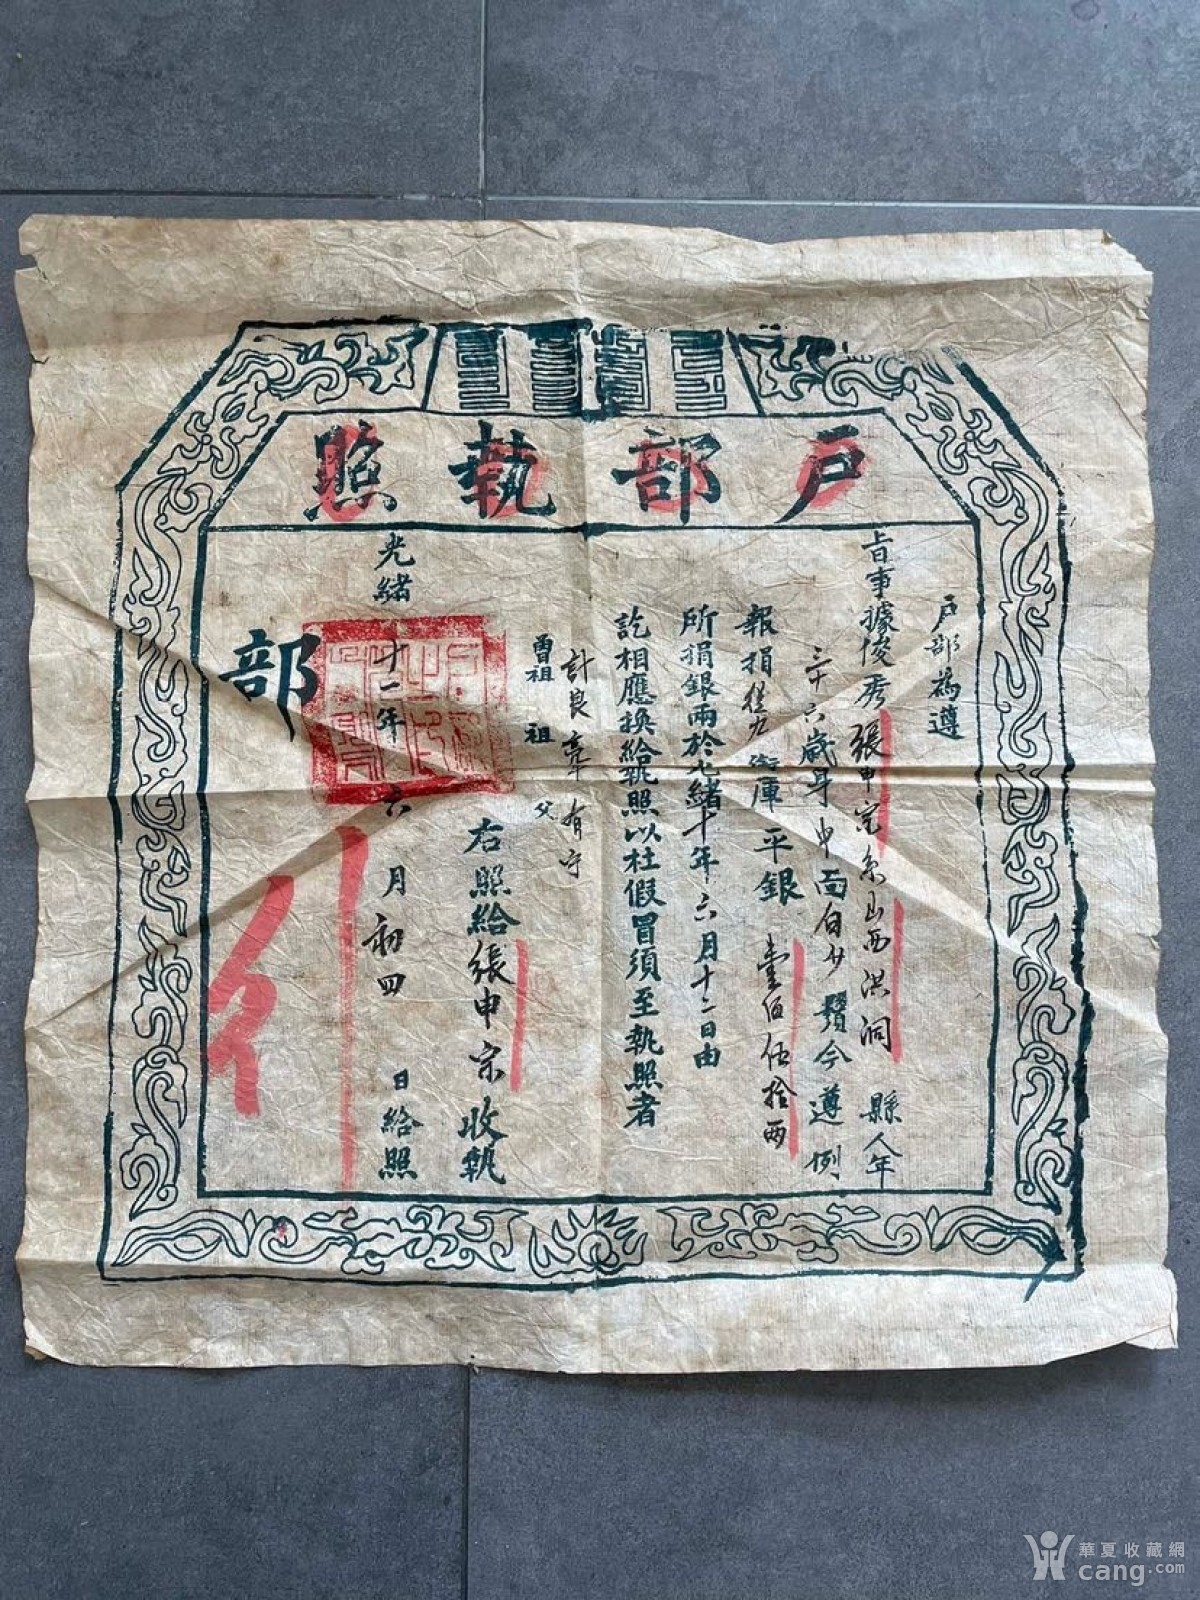 戶部執照
戶部為遵
旨事據俊秀張申宗系山西洪洞縣人年
三十六歲身中面白少鬚今遵例
報捐從九銜庫平銀壹佰伍拾兩
所捐銀兩於光緒十年六月十二日由
訖相應換給執照以杜假冒須至執照者
計良 有守
曾祖 祖 父
右照給張申宗收執
光緒十一年六月初四日給照
部
行
華夏收藏網
cang.com